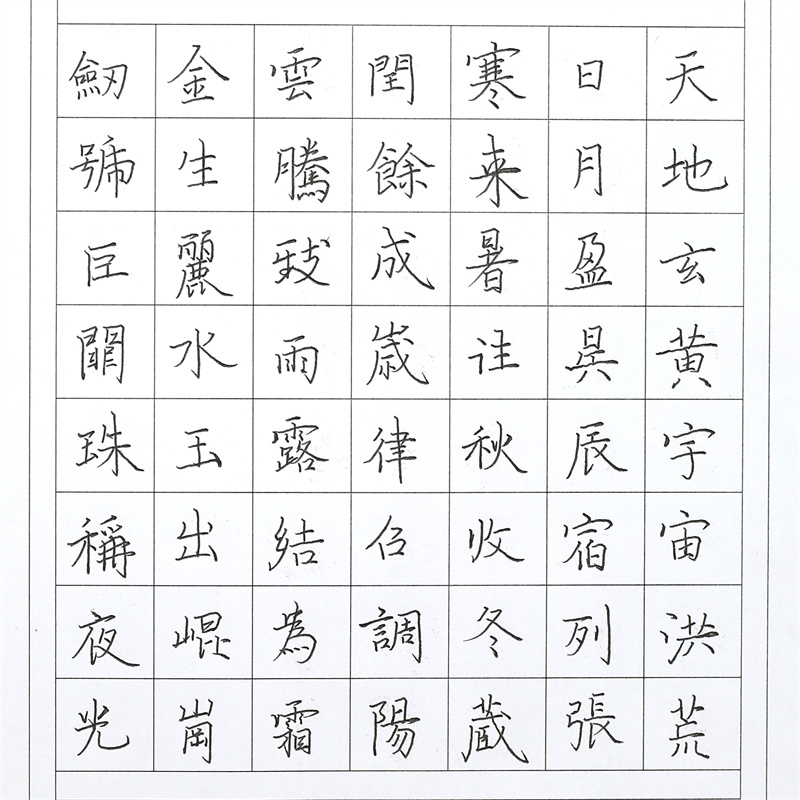 天地玄黄宇宙洪荒
日月盈昃辰宿列張
寒来暑往秋收冬蔵
閏餘成歳律召調陽
雲騰致雨露結為霜
金生麗水玉出崐崗
劒號巨闕珠稱夜光